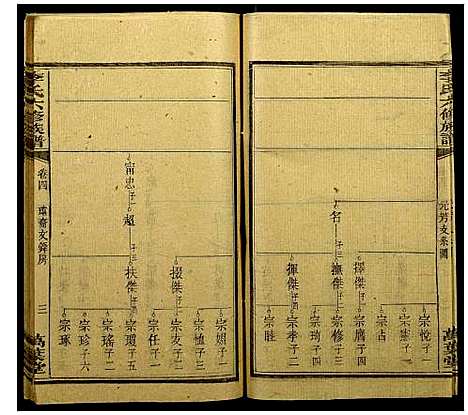 李氏六修族譜
元芳支系圖
萬葉堂
名 子三
擇傑 子四
撫傑 子三
揮傑 子三
宗悅 子一
宗占
宗膺 子四
宗修 子三
宗琦 子一
宗季 子二
宗勝
李氏六修族譜
卷四
三
萬葉堂
甯忠 子一
超 子二
掇傑 子三
扶傑 子四
宗娟 子一
宗植 子三
宗友 子二
宗任 子一
宗環 子五
宗瑤 子二
宗珍 子六
宗琢